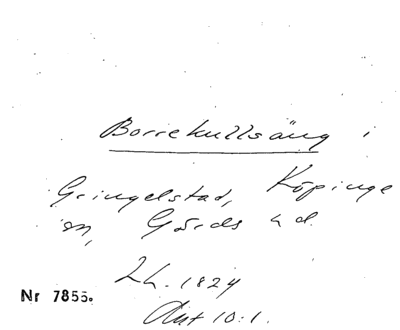 Borrekullsäng i
Gringelstad, Köpinge
sn, Gärds hd.
Lh. 1824
Akt 10:1.
Nr 7855.